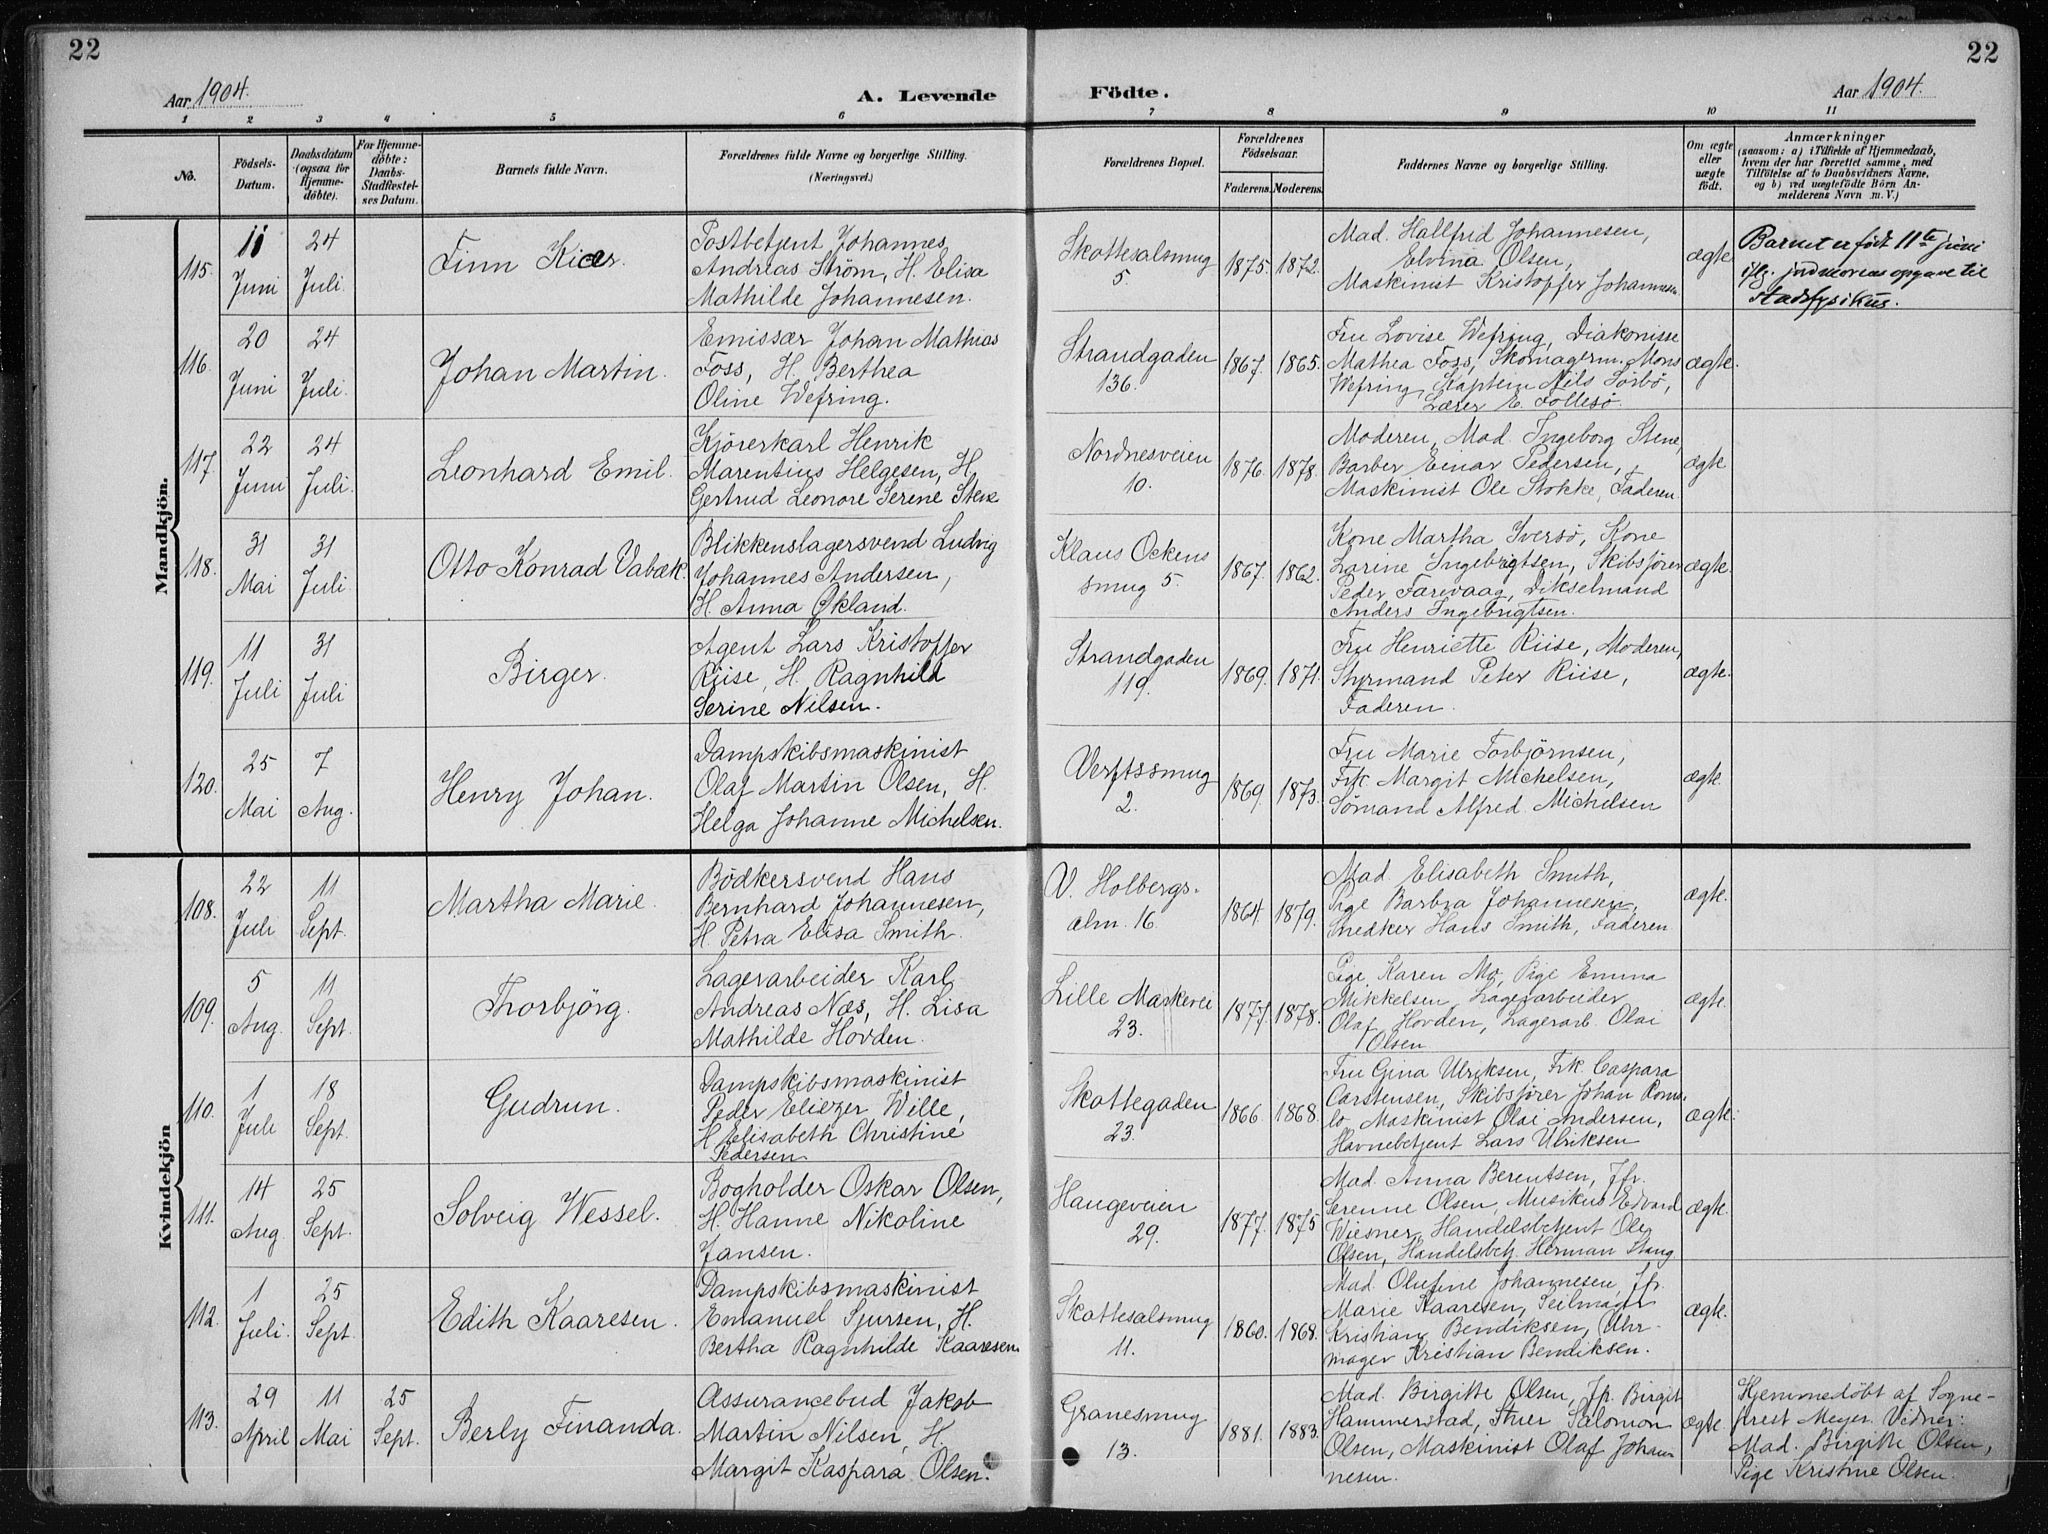 22
22
Aar 1904.
A. Levende
Födte.
Aar 1904.
1 2 3 4 5 6 7 8 9 10 11
No.
Födsels-
Datum.
Daabsdatum
(ogsaa for
Hjemme-
döbte).
For Hjemme-
döbte:
Daabs-
Stadfæstel-
ses Datum.
Barnets fulde Navn.
Forældrenes fulde Navne og borgerlige Stilling.
(Næringsvei.)
Forældrenes Bopæl.
Forældrenes
Födselsaar.
Faderens. Moderens.
Faddernes Navne og borgerlige Stilling.
Om ægte
eller
uægte
födt.
Anmærkninger
(saasom: a) i Tilfælde af Hjemmedaab,
hvem der har forrettet samme, med
Tilföielse af to Daabsvidners Navne,
og b) ved uægtefödte Börn An-
melderens Navn m.V.)
Mandkjön.
115.
11
Juni
24
Juli
Finn Kiær.
Postbetjent Johannes
Andreas Strøm, H. Elisa
Mathilde Johannesen.
Skottesalsmug
5.
1875. 1872.
Mad. Hallfrid Johannesen,
Elvina Olsen,
Maskinist Kristopfer Johannesen
ægte
Barnet er født 11te juni
iflg. jordmorens opgave til
stadsfysikus.
116.
20
Juni
24
Juli.
Johan Martin.
Emissær Johan Mathias
Foss, H. Berthea
Oline Wefring.
Strandgaden
136.
1867. 1865.
Fru Lovise Wefring, Diakonisse
Mathea Foss, Skomagerm. Mons
Wefring, Kaptein Nils Sörbö,
Lærer E. Follesö.
ægte.
117.
22
Juni
24
Juli.
Leonhard Emil.
Kjörerkarl Henrik
Marentius Helgesen, H.
Gertrud Leonore Serene Stene
Nordnesveien
10.
1876. 1878.
Moderen, Mad. Ingeborg Stene,
Barber Einar Pedersen,
Maskinist Ole Stokke, Faderen.
ægte
118.
31
Mai
31
Juli.
Otto Konrad Vabæk.
Blikkenslagersvend Ludvig
Johannes Andersen,
H. Anna Økland.
Klaus Ockens
smug 5.
1867. 1862.
Kone Martha Iversö, Kone
Larine Ingebrigtsen, Skibsförer
Peder Farevaag, Dikselmand
Anders Ingebrigtsen.
ægte.
119.
11
Juli
31
Juli
Birger.
Agent Lars Kristopfer
Riise, H. Ragnhild
Serine Nilsen.
Strandgaden
119.
1869. 1871.
Fru Henriette Riise, Moderen,
Styrmand Peter Riise,
Faderen.
ægte.
120.
25
Mai
7
Aug.
Henry Johan.
Dampskibsmaskinist
Olaf Martin Olsen, H.
Helga Johanne Michelsen.
Verftssmug
2.
1869. 1873.
Fru Marie Torbjörnsen,
Frk. Margit Michelsen,
Sömand Alfred Michelsen
ægte.
Kvindekjön
108.
22
Juli
11
Sept.
Martha Marie.
Bödkersvend Hans
Bernhard Johannesen,
H. Petra Elisa Smith.
V. Holbergs-
alm. 16.
1864 1879.
Mad. Elisabeth Smith,
Pige Barbra Johannesen,
Snedker Hans Smith, Faderen
ægte.
109.
5
Aug.
11
Sept.
Thorbjörg.
Lagerarbeider Karl
Andreas Næs, H. Lisa
Mathilde Hovden.
Lille Markevei
23.
1877. 1878.
Pige Karen Mo, Pige Emma
Mikkelsen, Lagerarbeider
Olaf Hovden, Lagerarb. Olai
Olsen
ægte.
110.
1
Juli
18
Sept.
Gudrun.
Dampskibsmaskinist
Peder Eliezer Wille,
H. Elisabeth Christine
Pedersen
Skottegaden
23.
1866. 1868.
Fru Gina Ulriksen, Frk. Caspara
Carstensen, Skibsfører Johan Roms-
lo, Maskinist Olai Andersen,
Havnebetjent Lars Ulriksen
ægte.
111.
14
Aug.
25
Sept.
Solveig Wessel.
Bogholder Oskar Olsen,
H. Hanne Nikoline
Jansen.
Haugeveien
29.
1877. 1875
Mad. Anna Berentsen, Jfr.
Serenne Olsen, Musikus Edvard
Wiesner, Handelsbetjent Ole
Olsen, Handelsbetj. Herman Stang
ægte.
112.
1
Juli.
25
Sept.
Edith Kaaresen.
Dampskibsmaskinist
Emanuel Sjursen, H.
Bertha Ragnhilde Kaaresen.
Skottesalsmug
11.
1860. 1868.
Mad. Olufine Johannesen, Jfr.
Marie Kaaresen, Seilmager
Kristian Bendiksen, Uhr-
mager Kristian Bendiksen.
ægte.
113.
29
April
11
Mai
25
Sept.
Berly Finanda.
Assurancebud Jakob
Martin Nilsen, H.
Margit Kaspara Olsen.
Granesmug
13.
1881. 1883.
Mad. Birgitte Olsen, Jfr. Birgit
Hammerstad, Stuer Salomon
Olsen, Maskinist Olaf Johan-
nesen.
ægte.
Hjemmedøbt af Sogne-
prest Meyer. Vidner:
Mad. Birgitte Olsen,
Pige Kristine Olsen.